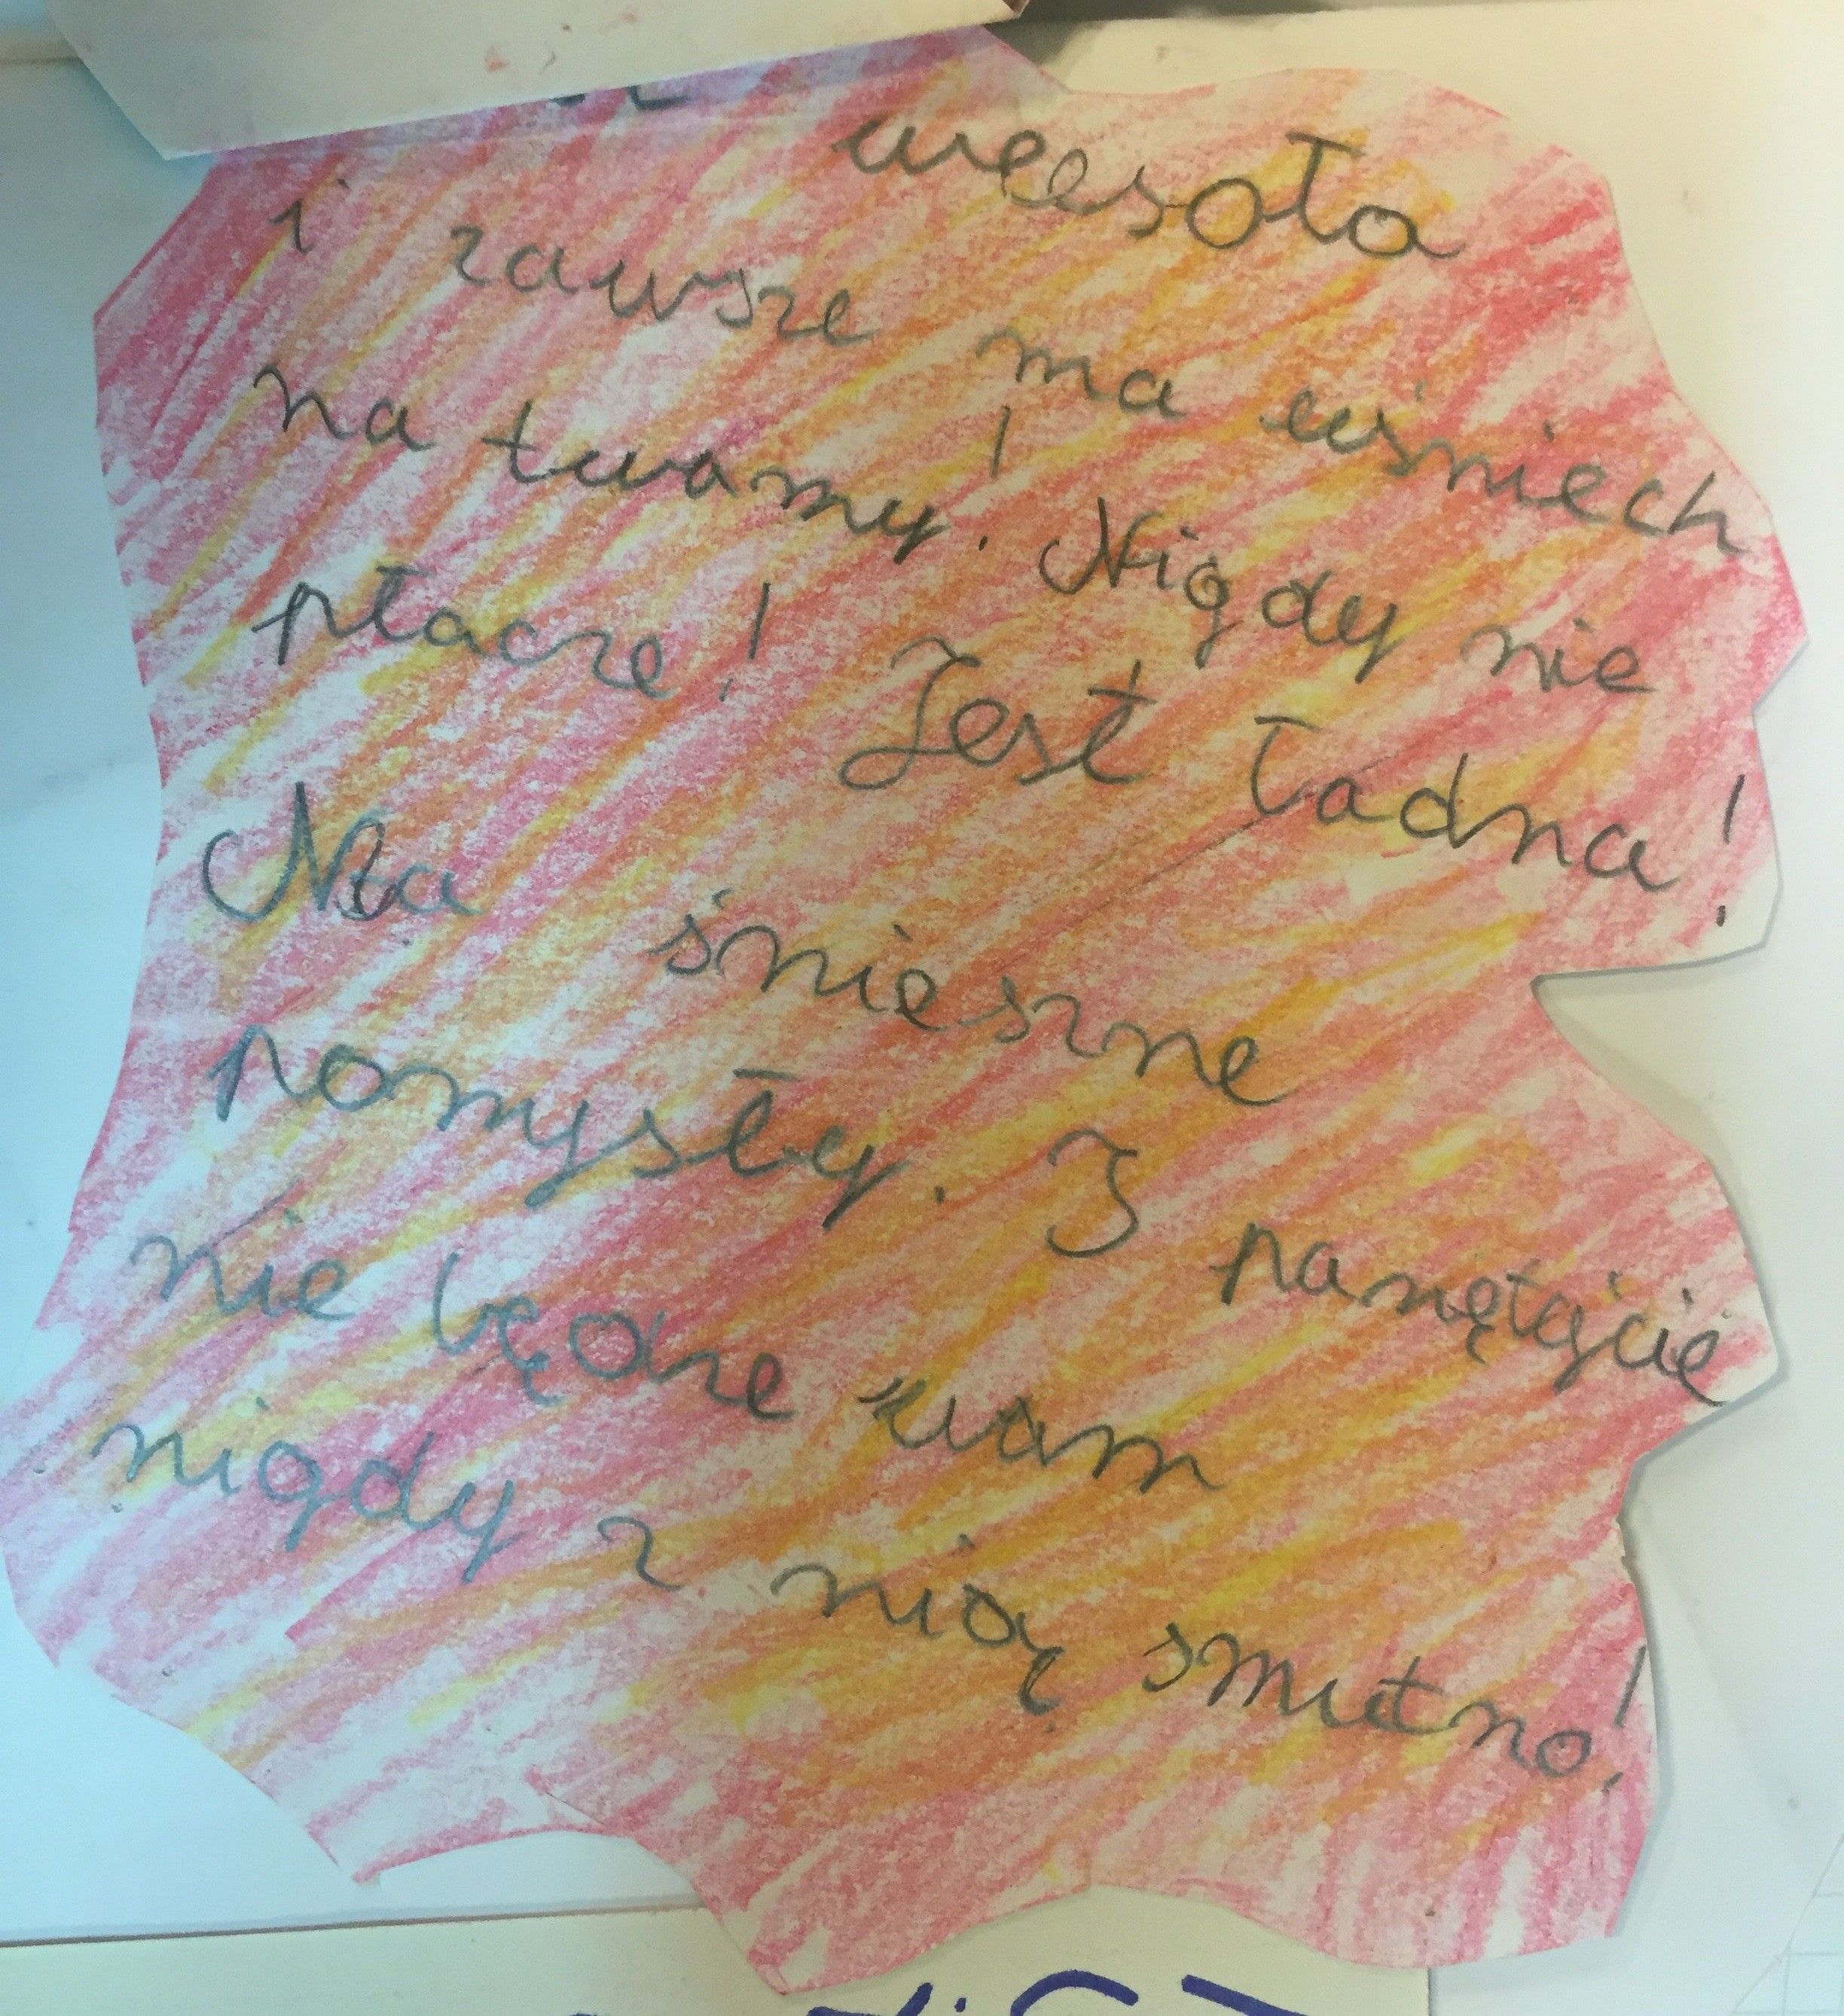 weesoła
i zawsze ma uśniech
na twarzy! Nigdy nie
płacze! Jest ładna!
Ma śnieszne
pomysły. I panętajcie
nie będze wam
nigdy z nią smutno!